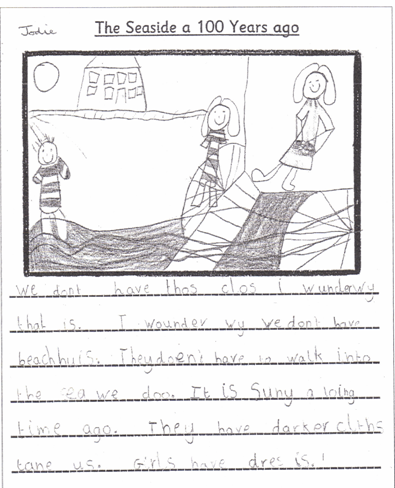 Jodie
The Seaside a 100 Years ago
we dont have thos clos i wunderwy
that is. I wounder wy we dont have
beachhuis. They doent have to walk into
the sea we doo. It is Suny a long
time ago. They have darker cliths
tane us. Girls have dres is.!